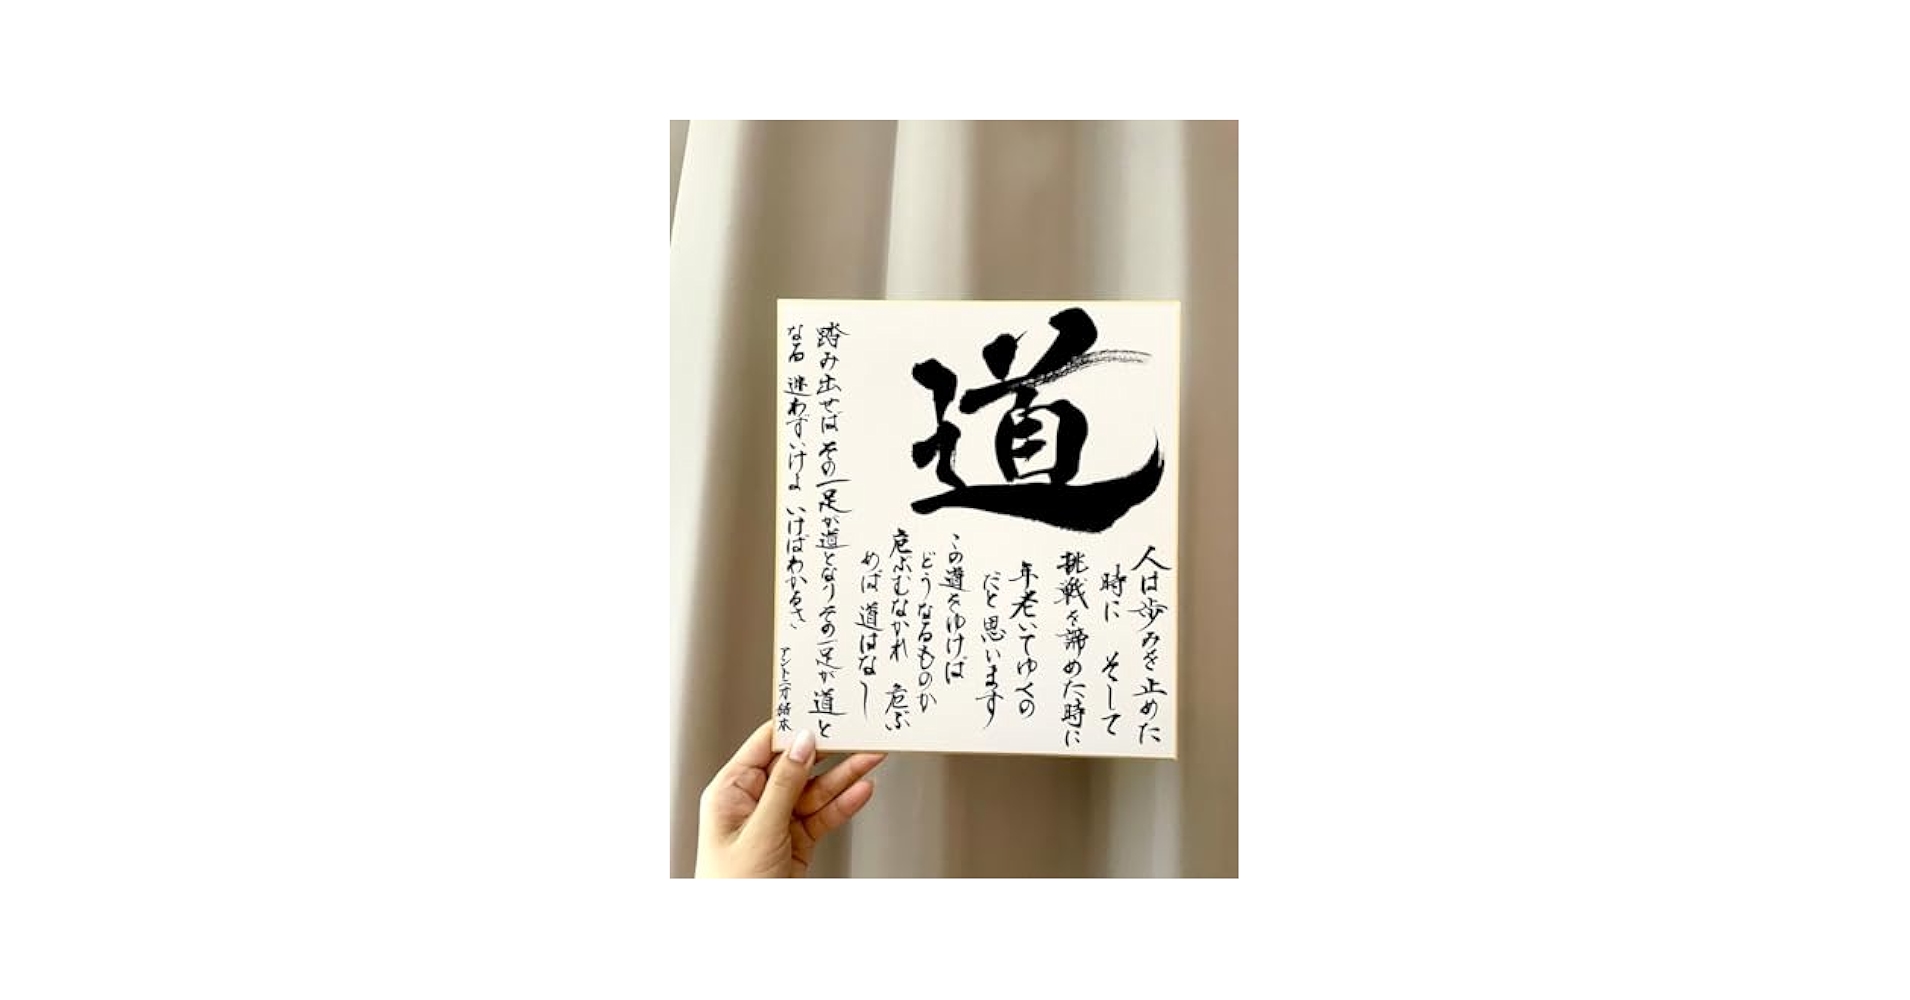 道
人は歩みを止めた
時に そして
挑戦を諦めた時に
年老いてゆくの
だと思います
この道をゆけば
どうなるものか
危ぶむなかれ 危ぶ
めば 道はなし
踏み出せば その一足が道となり その一足が 道と
なる 迷わずいけよ いけばわかるさ
アントニオ猪木